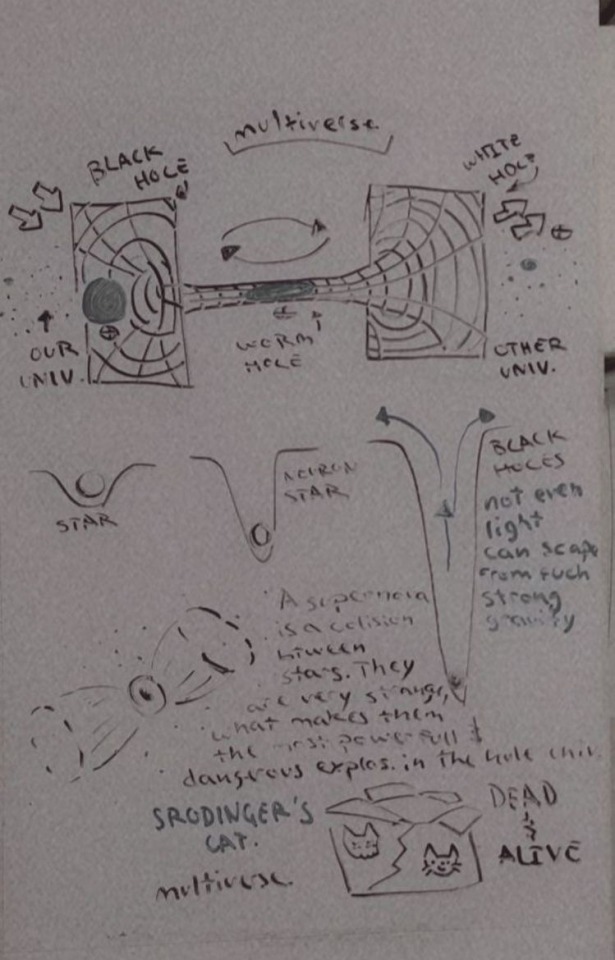 multiverse
BLACK
HOLE
WHITE
HOLE
OUR
UNIV.
WORM
HOLE
OTHER
UNIV.
STAR
NEIRON
STAR
BLACK
HOLES
not even
light
can scape
from such
strong
gravity
A supernova
is a colision
btween
stars. They
are very strange,
what makes them
the most powerfull &
dangrous explos. in the hole
SRODINGER'S
CAT.
multiverse.
DEAD
&
ALIVE